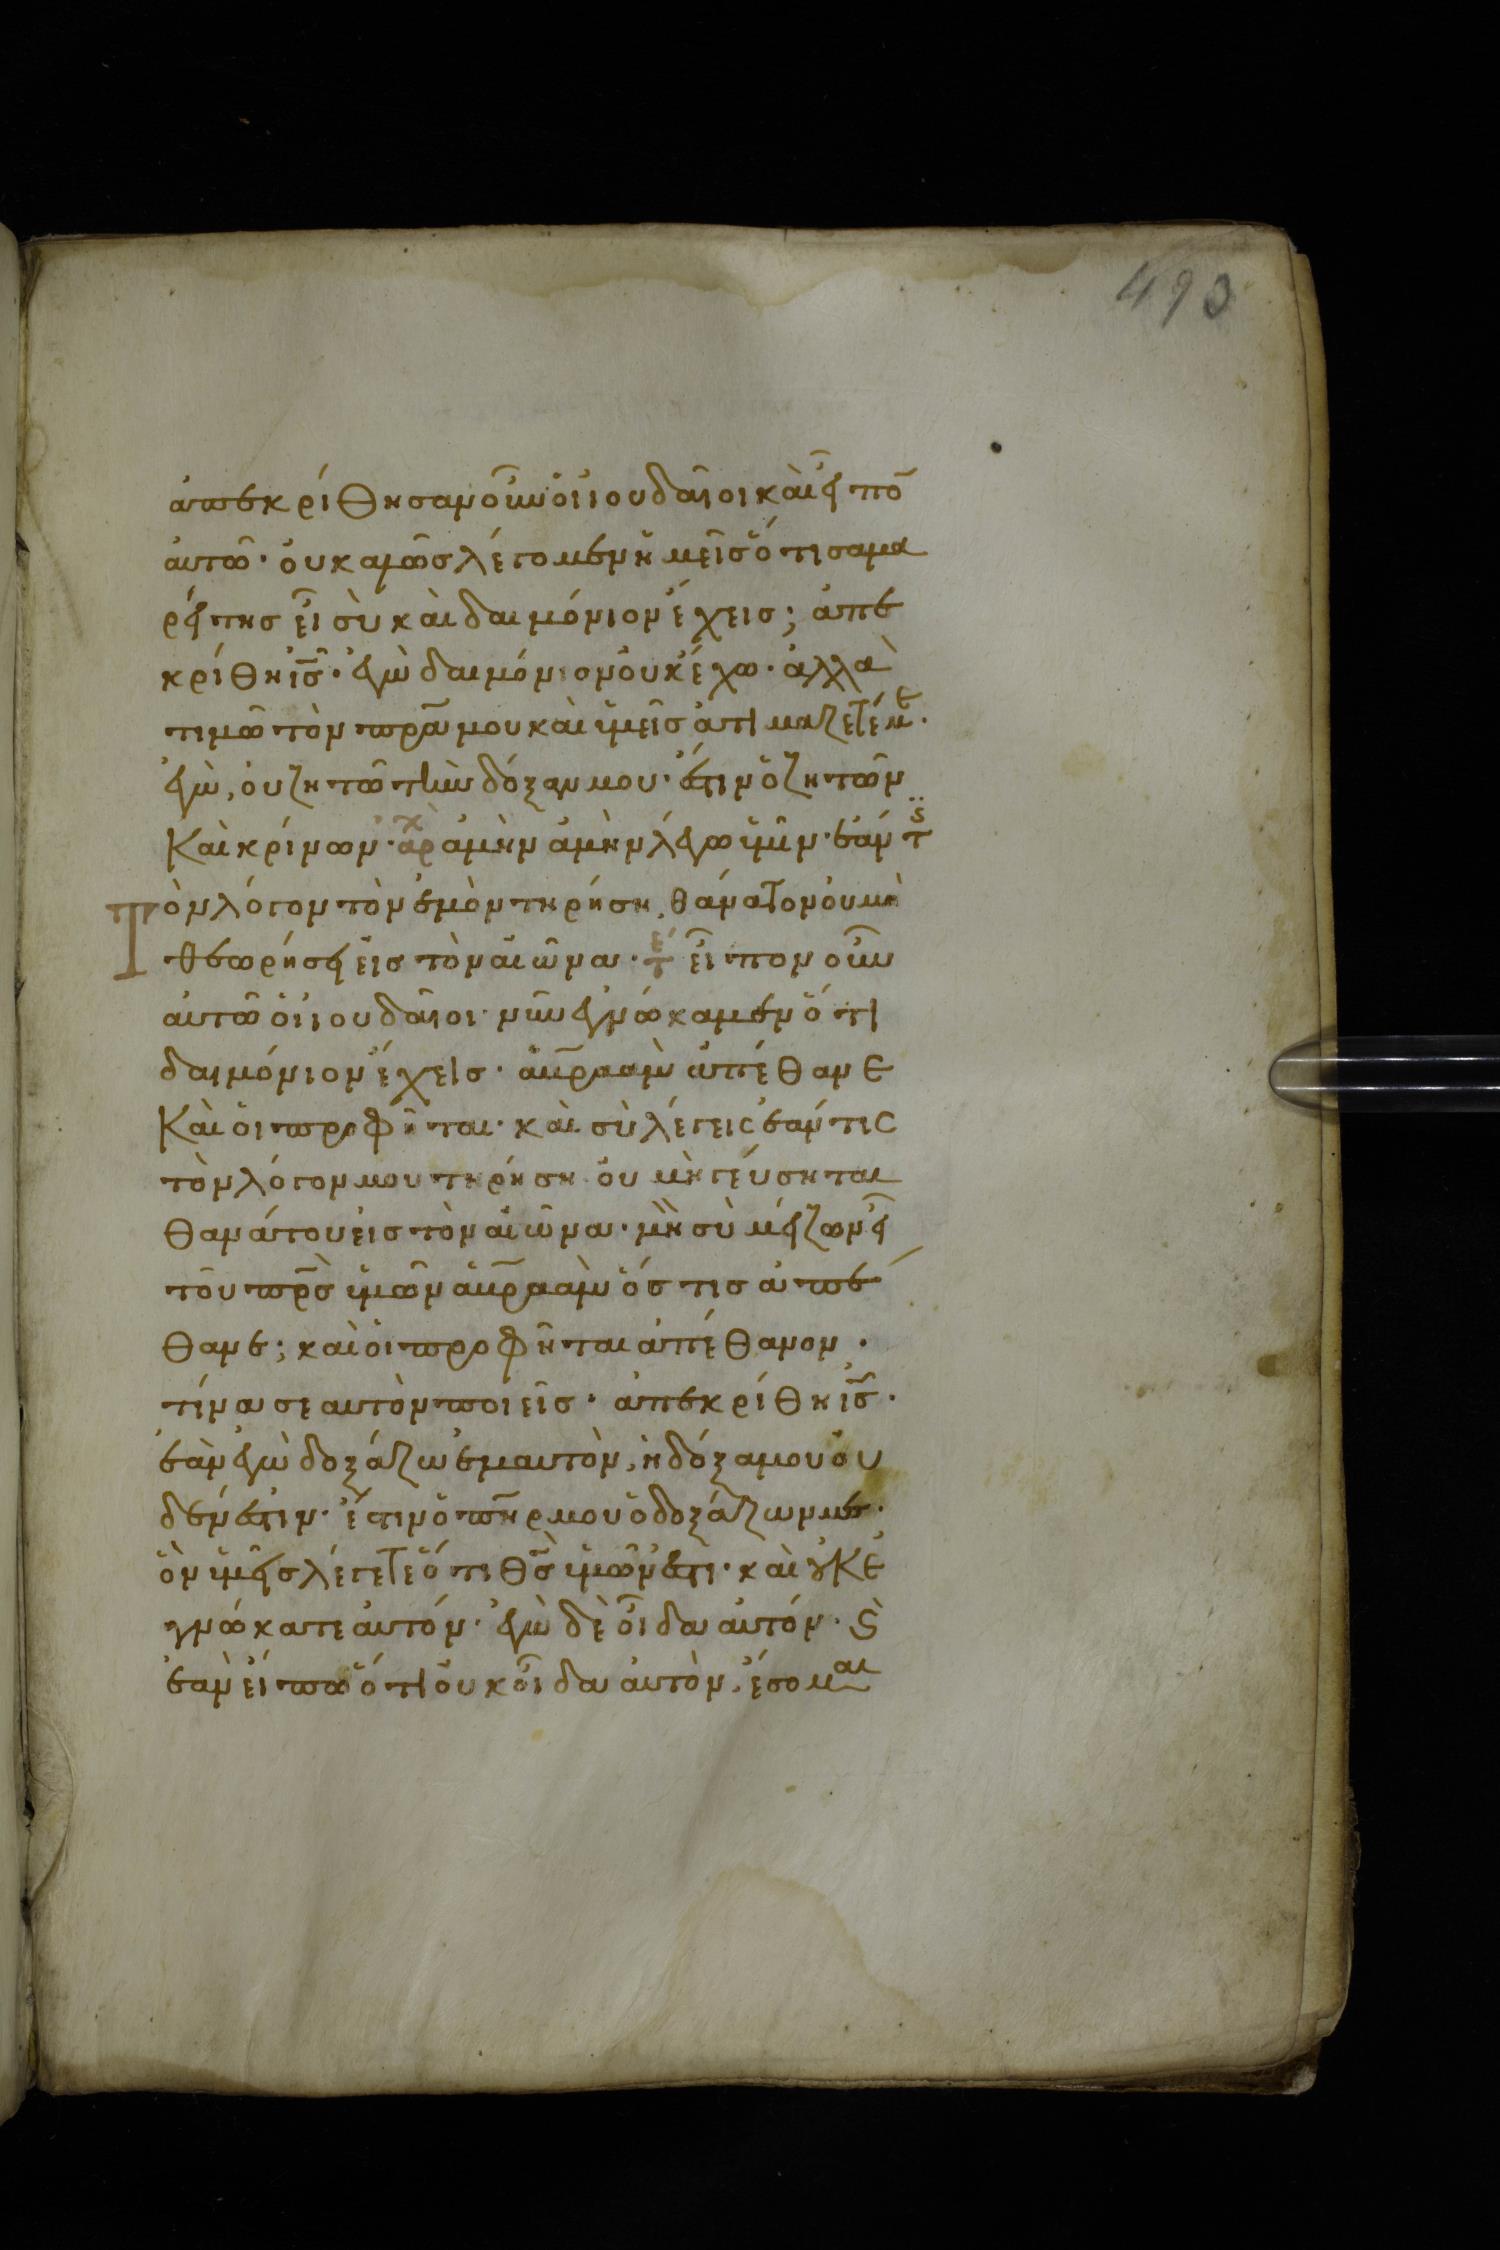 493
ἀπεκρίθησαν οὖν ὁι ιουδαῖοι κὰι εἶπο̅
ἀυτῶ· ὀυ καλῶσ λέγομεν ἡμεῖσ ὅτι σαμα
ρείτησ εἶ σὺ κὰι δαιμόνιον ἔχεισ; ἀπε
κρίθη ἰ̅σ̅· ἐγὼ δαιμόνιον ὀυκ ἔχω· ἀλλὰ
τιμῶ τὸν π̅ρ̅α̅ μου κὰι ὑμεῖσ ἀτιμαζετέ με·
ἐγὼ, ὀυ ζητῶ τὴν δόξαν μου· ἔστιν ὁ ζητῶν
Κὰι κρίνων· ἀρχ ἀμὴν ἀμὴν λέγω ὑμῖν· ἐάν τς
Τὸν λόγον τὸν ἐμὸν τηρήση, θάνατον ὀυ μὴ
θεωρήσει ἐισ τὸν ἀιῶνα· τέ εἶπον οὖν
ἀυτῶ ὁι ιουδαῖοι· νῦν ἐγνώκαμεν ὅτι
δαιμόνιον ἔχεισ· ἀβρααμ ἀπέθανε
Κὰι ὁι προφῆται· κὰι σὺ λέγεις ἐάν τις
τὸν λόγον μου τηρήση ὀυ μὴ γέυσηται
θανάτου ἐισ τὸν ἀιῶνα· μὴ σὺ μείζων εἶ
τοῦ π̅ρ̅σ̅ ἡμῶν ἀβρααμ ὅστισ ἀπέ
θανε; κὰι ὁι προφῆται ἀπέθανον·
τίνα σεαυτὸν ποιεῖσ· ἀπεκρίθη ἰ̅σ̅·
ἐὰν ἐγὼ δοξάζω ἐμαυτὸν, ἡ δόξα μου ὀυ
δέν ἐστιν· ἔστιν ὁ π̅η̅ρ μου ὁ δοξάζων με·
ὃν ὑμεῖσ λέγετε ὅτι θ̅σ̅ ἡμῶν ἐστὶ· κὰι ȣκ ἐ
γνώκατε ἀυτόν· ἐγὼ δὲ οἶδα ἀυτόν· ϗ
ἐὰν ἔιπω ὅτι ὀυκ οἶδα ἀυτὸν, ἔσομαι